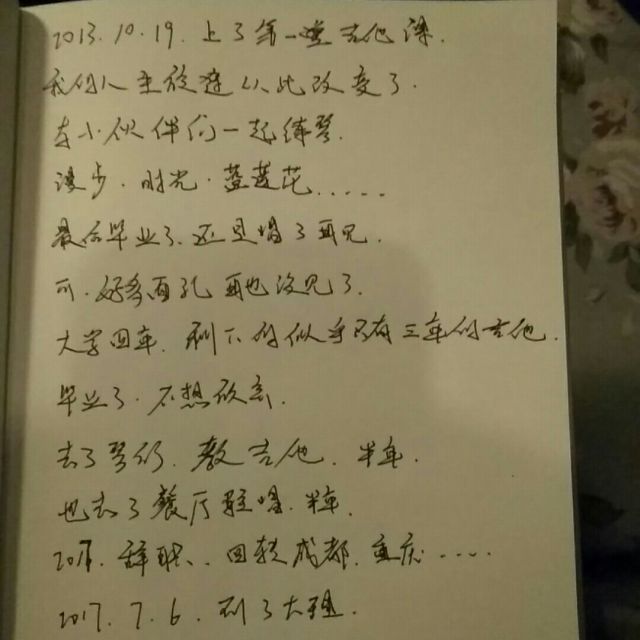 2013.10.19.上了第一堂吉他课.
我的人生轨迹从此改变了.
与小伙伴们一起练琴.
漫步.时光.蓝莲花......
最后毕业了.还是唱了再见.
可.好多面孔再也没见了.
大学四年.剩下的似乎只有三年的吉他.
毕业了.不想放弃.
去了琴行.教吉他.半年.
也去了餐厅驻唱.半年.
辞职..回转成都.重庆.....
2017.7.6.到了大理.